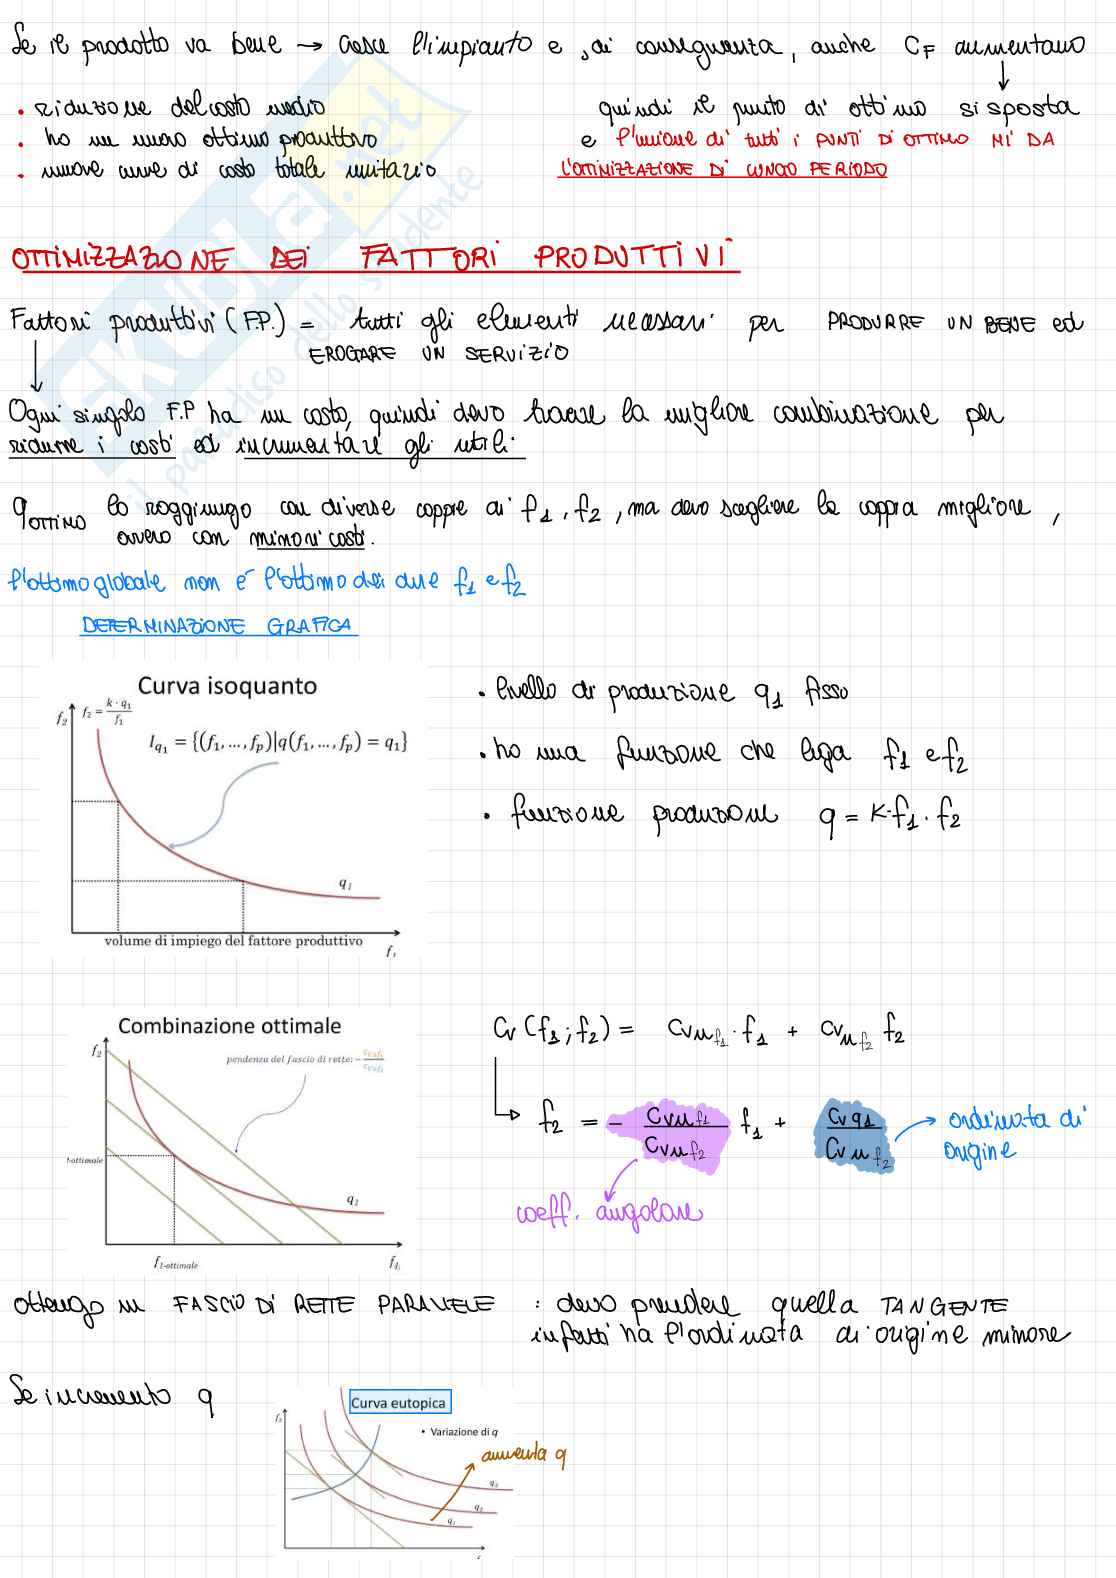 Se il prodotto va bene → cresce l'impianto e, di conseguenza, anche CF aumentano
• riduzione del costo medio
• ho un nuovo ottimo produttivo
• nuove curve di costo totale unitario
quindi il punto di ottimo si sposta
e l'unione di tutti i PUNTI DI OTTIMO MI DA
L'OTTIMIZZAZIONE DI LUNGO PERIODO
SKUOLA.net
il paradiso dello studente
OTTIMIZZAZIONE DEI FATTORI PRODUTTIVI
Fattori produttivi (F.P.) = tutti gli elementi necessari per PRODURRE UN BENE ed
EROGARE UN SERVIZIO
Ogni singolo F.P ha un costo, quindi devo trovare la migliore combinazione per
ridurre i costi ed incrementare gli utili.
qOTTIMO lo raggiungo con diverse coppie di f1, f2, ma devo scegliere la coppia migliore,
ovvero con minori costi.
l'ottimo globale non è l'ottimo dei due f1 e f2
DETERMINAZIONE GRAFICA
Curva isoquanto
f2 f2 = k·q1/f1
Iq1 = {(f1, …, fp)|q(f1, …, fp) = q1}
q1
volume di impiego del fattore produttivo
f1
• livello di produzione q1 fisso
• ho una funzione che lega f1 e f2
• funzione produzione q = K·f1·f2
Combinazione ottimale
f2
pendenza del fascio di rette: - cvuf1/cvuf2
2-ottimale
q1
f1-ottimale
f1
Cv (f1; f2) = Cvuf1·f1 + Cvuf2 f2
f2 = - Cvuf1/Cvuf2 f1 + Cvq1/Cvuf2 → ordinata di
origine
coeff. angolare
ottengo un FASCIO DI RETTE PARALLELE : devo prendere quella TANGENTE
infatti ha l'ordinata di origine minore
Se incremento q
Curva eutopica
f2
• Variazione di q
aumenta q
q3
q2
q1